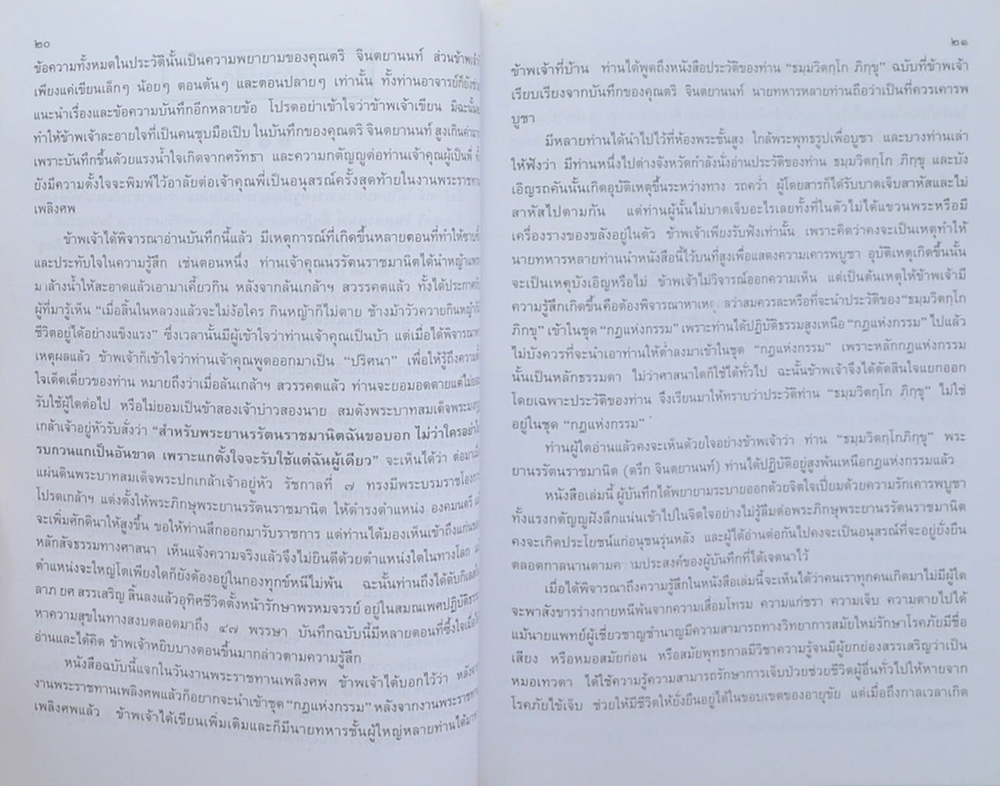 ๒๐
ข้อความทั้งหมดในประวัตินั้นเป็นความพยายามของคุณตริ จินตยานนท์ ส่วนข้าพเจ้า
เพียงแค่เขียนเล็กๆ น้อยๆ ตอนต้นๆ และตอนปลายๆ เท่านั้น ทั้งท่านอาจารย์ก็ยัง
แนะนำเรื่องและข้อความบันทึกอีกหลายข้อ โปรดอย่าเข้าใจว่าข้าพเจ้าเขียน มิฉะนั้น
ทำให้ข้าพเจ้าละอายใจที่เป็นคนชุบมือเปิบ ในบันทึกของคุณตริ จินตยานนท์ สูงเกินค่า
เพราะบันทึกขึ้นด้วยแรงน้ำใจเกิดจากศรัทธา และความกตัญญูต่อท่านเจ้าคุณผู้เป็นพี่
ยังมีความตั้งใจจะพิมพ์ไว้อาลัยต่อเจ้าคุณพี่เป็นอนุสรณ์ครั้งสุดท้ายในงานพระราชทาน
เพลิงศพ
ข้าพเจ้าได้พิจารณาอ่านบันทึกนี้แล้ว มีเหตุการณ์ที่เกิดขึ้นหลายตอนที่ทำให้
และประทับใจในความรู้สึก เช่นตอนหนึ่ง ท่านเจ้าคุณนรรัตนราชมานิตได้นำหญ้าแพรก
มาล้างน้ำให้สะอาดแล้วเอามาเคี้ยวกิน หลังจากล้นเกล้าฯ สวรรคตแล้ว ทั้งได้ประกาศ
ผู้ที่มารู้เห็น “เมื่อสิ้นในหลวงแล้วจะไม่ง้อใคร กินหญ้าก็ไม่ตาย ช้างม้าวัวควายกินหญ้า
ชีวิตอยู่ได้อย่างแข็งแรง” ซึ่งเวลานั้นมีผู้เข้าใจว่าท่านเจ้าคุณเป็นบ้า แต่เมื่อได้พิจารณา
เหตุผลแล้ว ข้าพเจ้าก็เข้าใจว่าท่านเจ้าคุณพูดออกมาเป็น “ปริศนา” เพื่อให้รู้ถึงความ
ใจเด็ดเดี่ยวของท่าน หมายถึงว่าเมื่อล้นเกล้าฯ สวรรคตแล้ว ท่านจะยอมอดตายแต่ไม่ยอม
รับใช้ผู้ใดต่อไป หรือไม่ยอมเป็นข้าสองเจ้าบ่าวสองนาย สมดังพระบาทสมเด็จพระมงกุฎ
เกล้าเจ้าอยู่หัวรับสั่งว่า “สำหรับพระยานรรัตนราชมานิตฉันขอบอก ไม่ว่าใครอย่าไป
รบกวนแกเป็นอันขาด เพราะแกตั้งใจจะรับใช้แต่ฉันผู้เดียว” จะเห็นได้ว่า ต่อมา
แผ่นดินพระบาทสมเด็จพระปกเกล้าเจ้าอยู่หัว รัชกาลที่ ๗ ทรงมีพระบรมราชโองการ
โปรดเกล้าฯ แต่งตั้งให้พระภิกษุพระยานรรัตนราชมานิต ให้ดำรงตำแหน่ง องคมนตรี
จะเพิ่มศักดินาให้สูงขึ้น ขอให้ท่านสึกออกมารับราชการ แต่ท่านได้มองเห็นเข้าถึงแก่น
หลักสัจธรรมทางศาสนา เห็นแจ้งความจริงแล้วจึงไม่ยินดีด้วยตำแหน่งใดในทางโลก
ตำแหน่งจะใหญ่โตเพียงใดก็ยังต้องอยู่ในกองทุกข์หนีไม่พ้น ฉะนั้นท่านถึงได้ดับกิเลส
ลาภ ยศ สรรเสริญ สิ้นลงแล้วอุทิศชีวิตตั้งหน้ารักษาพรหมจรรย์ อยู่ในสมณเพศปฏิบัติธรรม
หาความสุขในทางสงบตลอดมาถึง ๔๗ พรรษา บันทึกฉบับนี้มีหลายตอนที่ซึ้งใจเมื่อ
อ่านและได้คิด ข้าพเจ้าหยิบบางตอนขึ้นมากล่าวตามความรู้สึก
หนังสือฉบับนี้แจกในวันงานพระราชทานเพลิงศพ ข้าพเจ้าได้บอกไว้ว่า หลังจาก
งานพระราชทานเพลิงศพแล้วก็อยากจะนำเข้าชุด “กฎแห่งกรรม” หลังจากงานพระราชทาน
เพลิงศพแล้ว ข้าพเจ้าได้เขียนเพิ่มเติมและก็มีนายทหารชั้นผู้ใหญ่หลายท่านได้มา
๒๑
ข้าพเจ้าที่บ้าน ท่านได้พูดถึงหนังสือประวัติของท่าน “ธมฺมวิตกฺโก ภิกฺขุ” ฉบับที่ข้าพเจ้า
เรียบเรียงจากบันทึกของคุณตริ จินตยานนท์ นายทหารหลายท่านถือว่าเป็นที่ควรเคารพ
บูชา
มีหลายท่านได้นำไปไว้ที่ห้องพระชั้นสูง ใกล้พระพุทธรูปเพื่อบูชา และบางท่านเล่า
ให้ฟังว่า มีท่านหนึ่งไปต่างจังหวัดกำลังนั่งอ่านประวัติของท่าน ธมฺมวิตกฺโก ภิกฺขุ และบัง
เอิญรถคันนั้นเกิดอุบัติเหตุขึ้นระหว่างทาง รถคว่ำ ผู้โดยสารก็ได้รับบาดเจ็บสาหัสและไม่
สาหัสไปตามกัน แต่ท่านผู้นั้นไม่บาดเจ็บอะไรเลยทั้งที่ในตัวไม่ได้แขวนพระหรือมี
เครื่องรางของขลังอยู่ในตัว ข้าพเจ้าเพียงรับฟังเท่านั้น เพราะคิดว่าคงจะเป็นเหตุทำให้
นายทหารหลายท่านนำหนังสือนี้ไว้บนที่สูงเพื่อแสดงความเคารพบูชา อุบัติเหตุเกิดขึ้นนั้น
จะเป็นเหตุบังเอิญหรือไม่ ข้าพเจ้าไม่วิจารณ์ออกความเห็น แต่เป็นต้นเหตุให้ข้าพเจ้ามี
ความรู้สึกเกิดขึ้นคือต้องพิจารณาหาเหตุผลว่าสมควรละหรือที่จะนำประวัติของ “ธมฺมวิตกฺโก
ภิกขุ” เข้าในชุด “กฎแห่งกรรม” เพราะท่านได้ปฏิบัติธรรมสูงเหนือ “กฎแห่งกรรม” ไปแล้ว
ไม่บังควรที่จะนำเอาท่านให้ต่ำลงมาเข้าในชุด “กฎแห่งกรรม” เพราะหลักกฎแห่งกรรม
นั้นเป็นหลักธรรมดา ไม่ว่าศาสนาใดก็ใช้ได้ทั่วไป ฉะนั้นข้าพเจ้าจึงได้ตัดสินใจแยกออก
โดยเฉพาะประวัติของท่าน จึงเรียนมาให้ทราบว่าประวัติท่าน “ธมฺมวิตกฺโก ภิกฺขุ” ไม่ใช่
อยู่ในชุด “กฎแห่งกรรม”
ท่านผู้ใดอ่านแล้วคงจะเห็นด้วยใจอย่างข้าพเจ้าว่า ท่าน “ธมฺมวิตกฺโกภิกฺขุ” พระ
ยานรรัตนราชมานิต (ตรึก จินตยานนท์) ท่านได้ปฏิบัติอยู่สูงพ้นเหนือกฎแห่งกรรมแล้ว
หนังสือเล่มนี้ ผู้บันทึกได้พยายามระบายออกด้วยจิตใจเปี่ยมด้วยความรักเคารพบูชา
ทั้งแรงกตัญญูฝังลึกแน่นเข้าไปในจิตใจอย่างไม่รู้ลืมต่อพระภิกษุพระยานรรัตนราชมานิต
คงจะเกิดประโยชน์แก่อนุชนรุ่นหลัง และผู้ได้อ่านต่อกันไปคงจะเป็นอนุสรณ์ที่จะอยู่ยั่งยืน
ตลอดกาลนานตามความประสงค์ของผู้บันทึกที่ได้เจตนาไว้
เมื่อได้พิจารณาถึงความรู้สึกในหนังสือเล่มนี้จะเห็นได้ว่าคนเราทุกคนเกิดมาไม่มีผู้ใด
จะพาสังขารร่างกายหนีพ้นจากความเสื่อมโทรม ความแก่ชรา ความเจ็บ ความตายไปได้
แม้นายแพทย์ผู้เชี่ยวชาญชำนาญมีความสามารถทางวิทยาการสมัยใหม่รักษาโรคภัยมีชื่อ
เสียง หรือหมอสมัยก่อน หรือสมัยพุทธกาลมีวิชาความรู้จนมีผู้ยกย่องสรรเสริญว่าเป็น
หมอเทวดา ได้ใช้ความรู้ความสามารถรักษาการเจ็บป่วยช่วยชีวิตผู้อื่นทั่วไปให้หายจาก
โรคภัยไข้เจ็บ ช่วยให้มีชีวิตให้ยั่งยืนอยู่ได้ในขอบเขตของอายุขัย แต่เมื่อถึงกาลเวลาเกิด